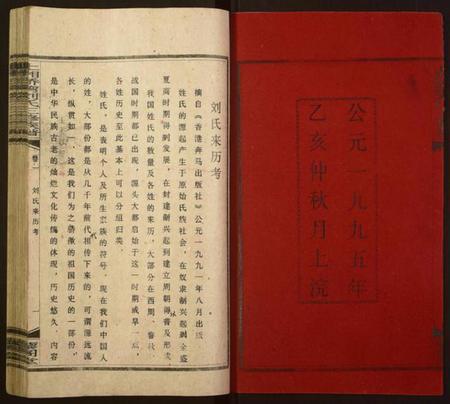 公元一九九五年
乙亥仲秋月上浣
刘氏来历考
摘自《香港奔马出版社》公元一九九一年八月出版
姓氏的源起产生于原始氏族社会，在奴隶制兴起到全盛
夏商时期得到发展，在封建制兴起到建立周朝得普及形成
我国姓氏的数量及各姓的来历，大部分在西周、春秋
战国时期都已出现，源头大都启始于这一时期或早一点，
各姓历史至此基本上可以分组归类。
姓氏，是表明个人及所生家族的符号。现在我们中国人
的姓，大部份都是从几千年前代相传下来的，可谓源远流
长，纵贯如一。这是我们为之骄傲的祖国历史的一部份，
是中华民族古老的灿烂文化传统的体现，历史悠久，内容
卷一
刘氏来历考
一